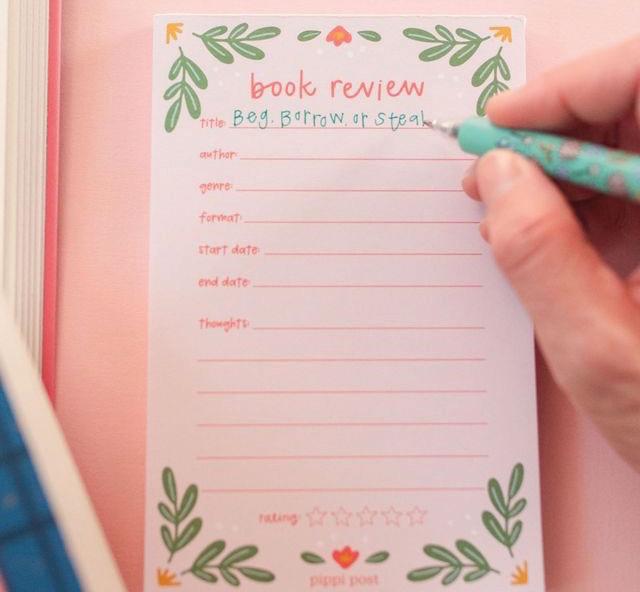 book review
title: Beg, Borrow, or Steal
author:
genre:
format:
start date:
end date:
thoughts:
rating:
pippi post